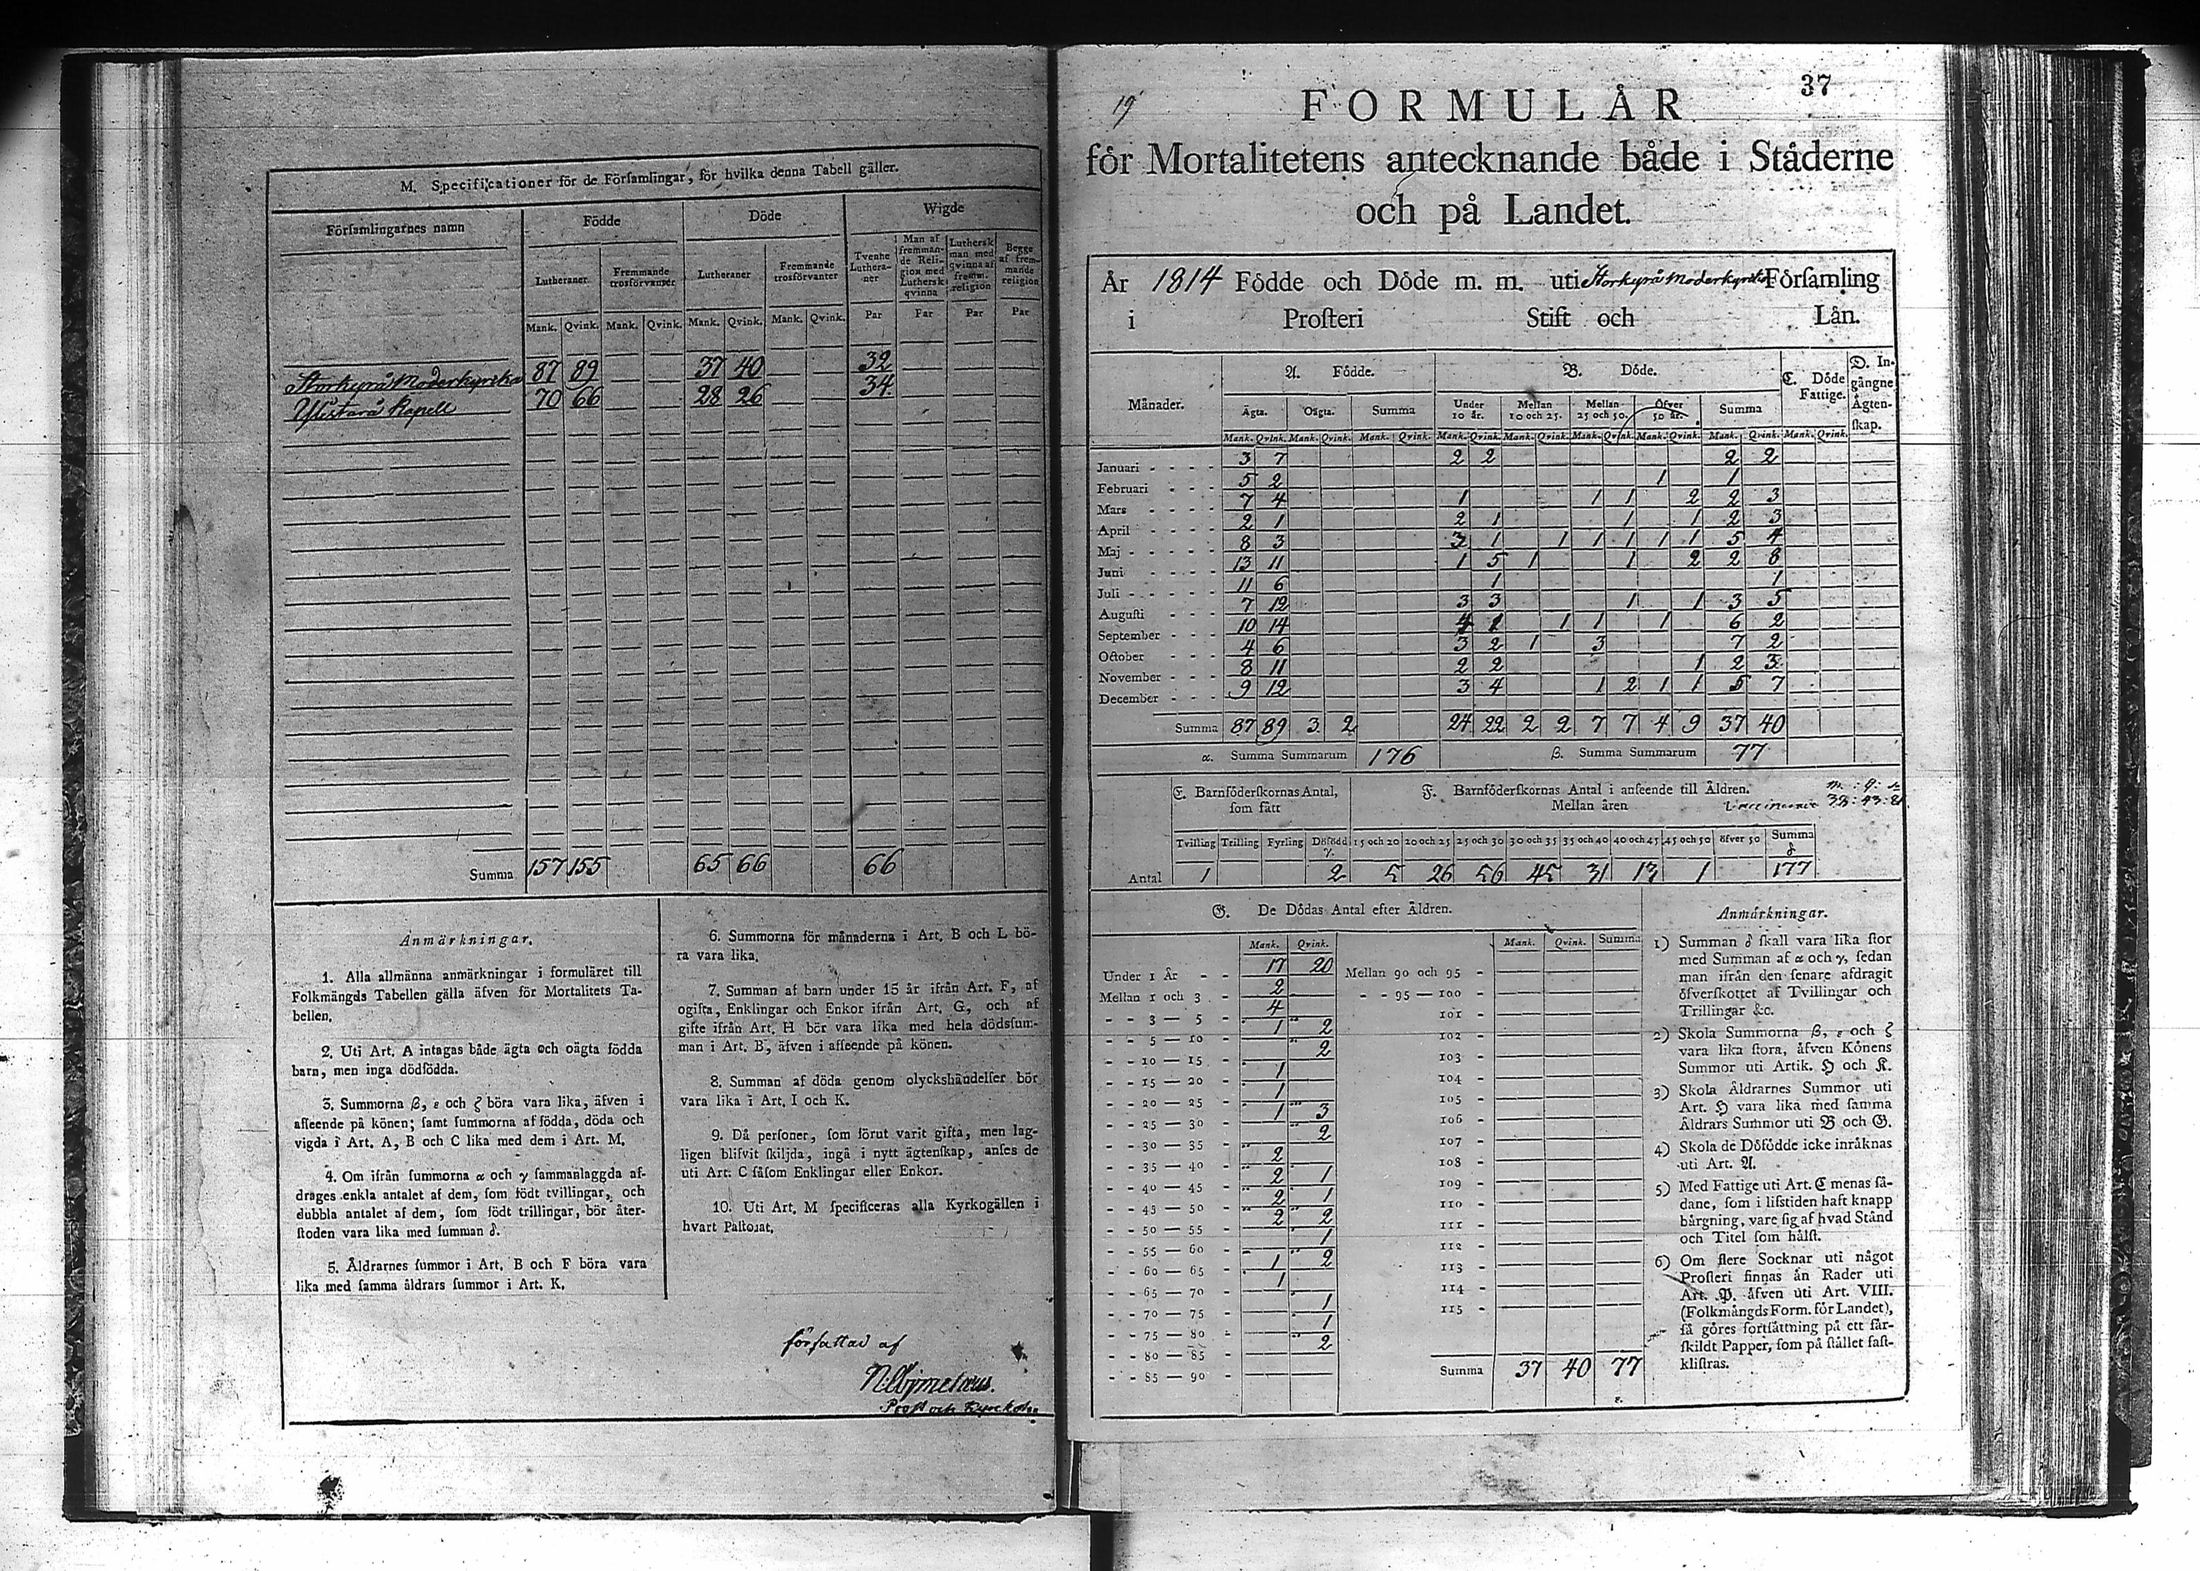 M. Specificationer för de Församlingar, för hvilka denna Tabell gäller.
Församlingarnes namn
Födde
Döde
Wigde
Lutheraner
Fremmande trosförvanter
Lutheraner
Fremmande trosförvanter
Tvenne Lutheraner
Man af fremmande Religion med Luthersk qvinna
Luthersk man med qvinna af fremm. religion
Begge af fremmande religion
Mank. Qvink. Mank. Qvink. Mank. Qvink. Mank. Qvink. Par Par Par Par
Storkyrå Moderkyrka 87 89 37 40 32
Ylistaro Kapell 70 66 28 26 34
Summa 157 155 65 66 66
Anmärkningar.
1. Alla allmänna anmärkningar i formuläret till
Folkmängds Tabellen gälla äfven för Mortalitets Ta-
bellen.
2. Uti Art. A intagas både ägta och oägta födda
barn, men inga dödfödda.
3. Summorna β, ε och ζ böra vara lika, äfven i
afseende på könen; samt summorna af födda, döda och
vigda i Art. A, B och C lika med dem i Art. M.
4. Om ifrån summorna α och γ sammanlaggda af-
drages enkla antalet af dem, som födt tvillingar, och
dubbla antalet af dem, som födt trillingar, bör åter-
stoden vara lika med summan δ.
5. Åldrarnes summor i Art. B och F böra vara
lika med samma åldrars summor i Art. K.
6. Summorna för månaderna i Art. B och L bö-
ra vara lika.
7. Summan af barn under 15 år ifrån Art. F, af
ogifta, Enklingar och Enkor ifrån Art. G, och af
gifte ifrån Art. H bör vara lika med hela dödssum-
man i Art. B, äfven i afseende på könen.
8. Summan af döda genom olyckshändelser bör
vara lika i Art. I och K.
9. Då personer, som förut varit gifta, men lag-
ligen blifvit skiljda, ingå i nytt ägtenskap, anses de
uti Art. C såsom Enklingar eller Enkor.
10. Uti Art. M specificeras alla Kyrkogällen i
hvart Pastorat.
författad af
Prost och Kyrckoh.
19
37
FORMULÅR
för Mortalitetens antecknande både i Ståderne
och på Landet.
År 1814 Födde och Döde m. m. uti Storkyrå Moderkyrka Församling
i Prosteri Stift och Lån.
Månader.
A. Födde.
B. Döde.
C. Döde Fattige.
D. Ingångne Ägtenskap.
Ägta. Oägta. Summa
Under 10 år. Mellan 10 och 25. Mellan 25 och 50. Öfver 50 år. Summa
Mank. Qvink. Mank. Qvink. Mank. Qvink. Mank. Qvink. Mank. Qvink. Mank. Qvink. Mank. Qvink. Mank. Qvink. Mank. Qvink.
Januari 3 7 2 2 2 2
Februari 5 2 1 1
Mars 7 4 1 1 1 2 2 3
April 2 1 2 1 1 1 2 3
Maj 8 3 3 1 1 1 1 1 1 5 4
Juni 13 11 1 5 1 1 2 2 8
Juli 11 6 1 1
Augusti 7 12 3 3 1 1 3 5
September 10 14 4 1 1 1 1 6 2
October 4 6 3 2 1 3 7 2
November 8 11 2 2 1 2 3
December 9 12 3 4 1 2 1 1 5 7
Summa 87 89 3 2 24 22 2 2 7 7 4 9 37 40
α. Summa Summarum 176 β. Summa Summarum 77
E. Barnföderskornas Antal, som fått
F. Barnföderskornas Antal i anseende till Åldren.
Mellan åren
Tvilling Trilling Fyrling Dödfödd γ. 15 och 20 20 och 25 25 och 30 30 och 35 35 och 40 40 och 45 45 och 50 öfver 50 Summa δ
Antal 1 2 5 26 56 45 31 13 1 177
G. De Dödas Antal efter Åldren.
Mank. Qvink.
Under 1 År 17 20
Mellan 1 och 3 2
3 — 5 4
5 — 10 1 2
10 — 15 2
15 — 20 1
20 — 25 1
25 — 30 1 3
30 — 35 2
35 — 40 2
40 — 45 2 1
45 — 50 2 1
50 — 55 2 2
55 — 60 1
60 — 65 1 2
65 — 70 1
70 — 75 1
75 — 80 1
80 — 85 2
85 — 90
Mank. Qvink. Summa
Mellan 90 och 95
95 — 100
101
102
103
104
105
106
107
108
109
110
111
112
113
114
115
Summa 37 40 77
Anmårkningar.
1) Summan δ skall vara lika stor
med Summan af α och γ, sedan
man ifrån den senare afdragit
öfverskottet af Tvillingar och
Trillingar &c.
2) Skola Summorna β, ε och ζ
vara lika stora, åfven Könens
Summor uti Artik. H och K.
3) Skola Åldrarnes Summor uti
Art. H vara lika med samma
Åldrars Summor uti B och G.
4) Skola de Dödfödde icke inråknas
uti Art. A.
5) Med Fattige uti Art. C menas så-
dane, som i lifstiden haft knapp
bårgning, vare sig af hvad Stånd
och Titel som hålst.
6) Om flere Socknar uti något
Prosteri finnas ån Rader uti
Art. P. åfven uti Art. VIII.
(Folkmångds Form. för Landet),
så göres fortsåttning på ett sår-
skildt Papper, som på stållet fast-
klistras.